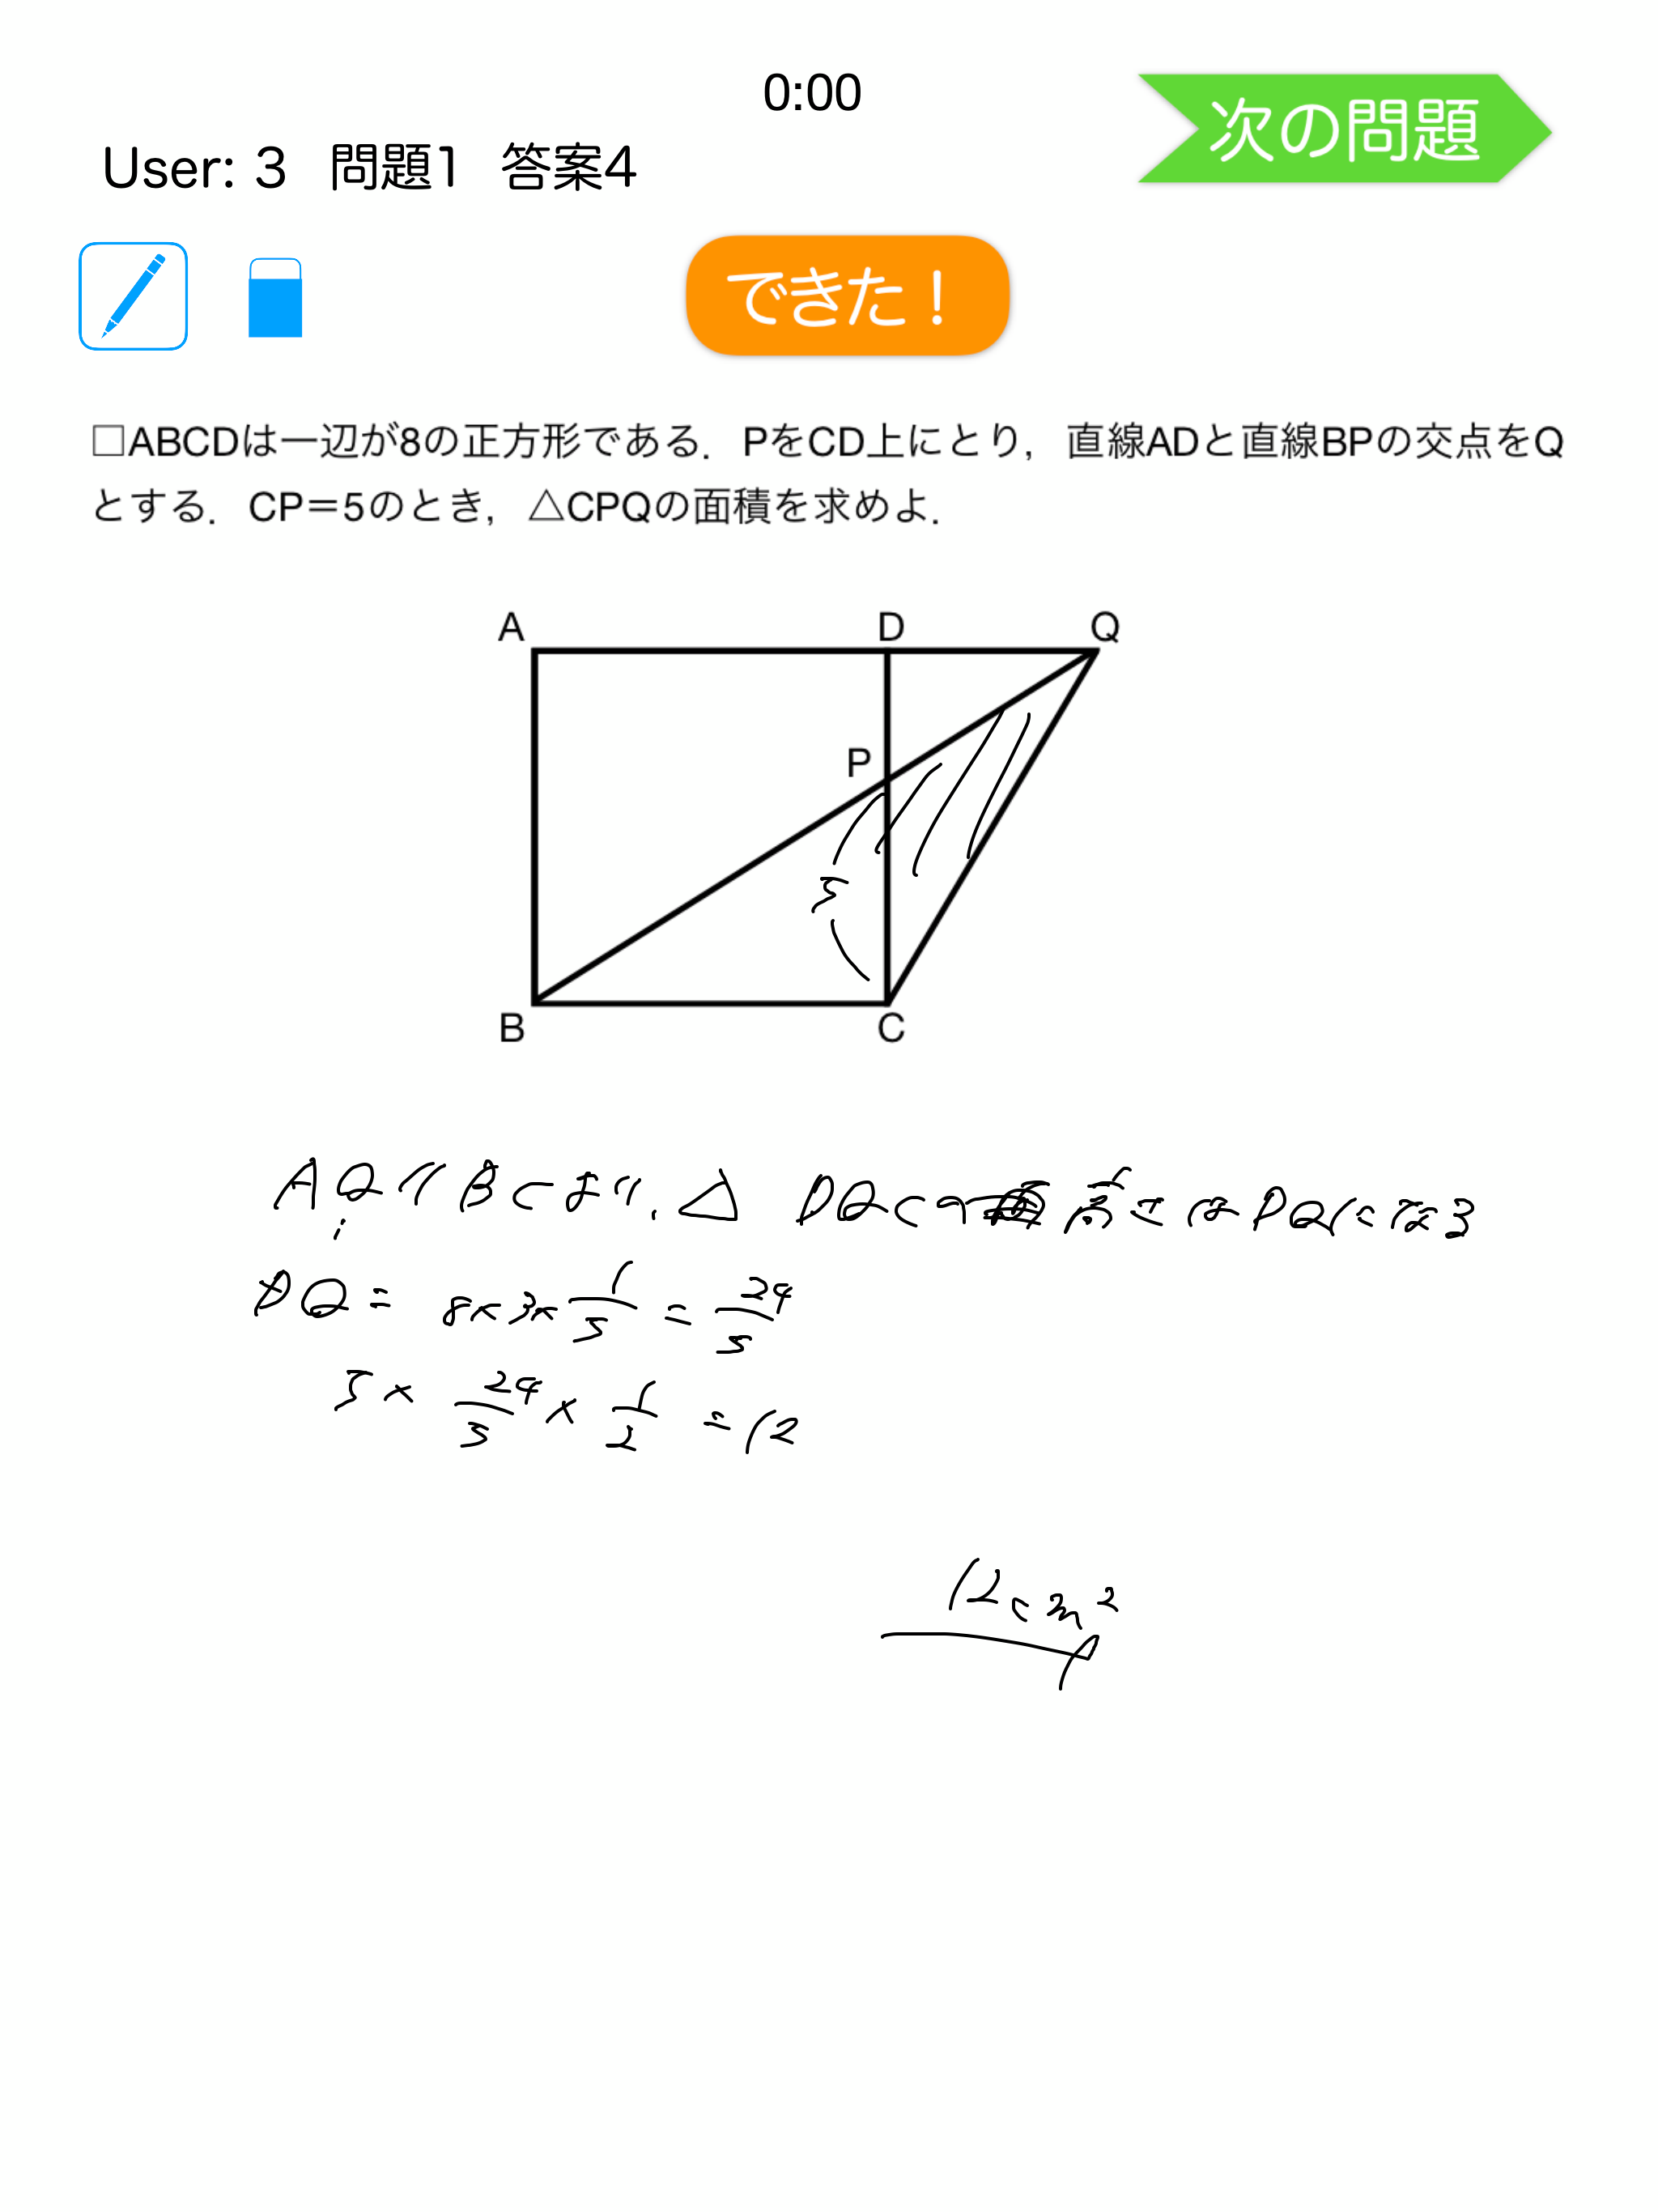 0:00
次の問題
User: 3 問題1 答案4
できた！
□ABCDは一辺が8の正方形である．PをCD上にとり，直線ADと直線BPの交点をQ
とする．CP＝5のとき，△CPQの面積を求めよ．
A D Q
P
5
B C
AQ//BCより, △PQCの高さはDQになる
DQ = 8×3×1/5 = 24/5
5× 24/5 × 1/2 = 12
12cm²